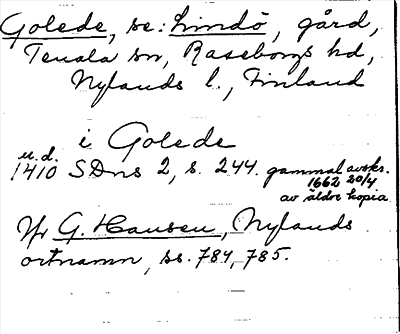 Golede, se: Lindö, gård,
Tenala sn, Raseborgs hd,
Nylands l., Finland
i Golede
u.d.
1410 SDns 2, s. 244. gammal avskr.
1662 20/4
av äldre kopia
Jfr G. Hausen, Nylands
ortnamn, ss. 784, 785.